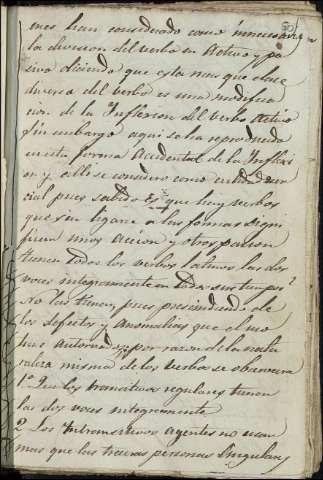 nes han considerado como innecesaria
la division del verbo en Activo y pa
sivo diciendo que esta mas que clase
diversa del verbo es una modifica
cion de la Inflexion del verbo Activo
Sin embargo aqui se la
en esta forma Accidental de la Inflexi
on y alli se considero como
cial pues sabido es que hay verbos
que sin ligarse a las formas signi
fican unos accion y otros pasion
tienen todos los verbos latinos las dos
voces integramente en todos sus tiempos?
No las tienen, pues prescindiendo de
los defectos y anomalias que el uso
hace autorizado, por razon de la natu
raleza misma de los verbos se observara
1º Que los transitivos regulares tienen
las dos voces integramente
2 Los Intransitivos agentes no usan
mas que las terceras personas Singulares